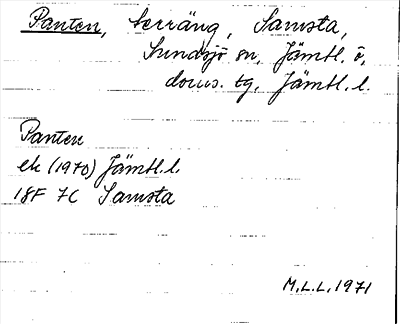 Panten, terräng, Samsta,
Sundsjö sn, Jämtl. ö,
doms. tg, Jämtl. l.
Panten
ek (1970) Jämtl. l.
18F 7C Samsta
M.L.L. 1971